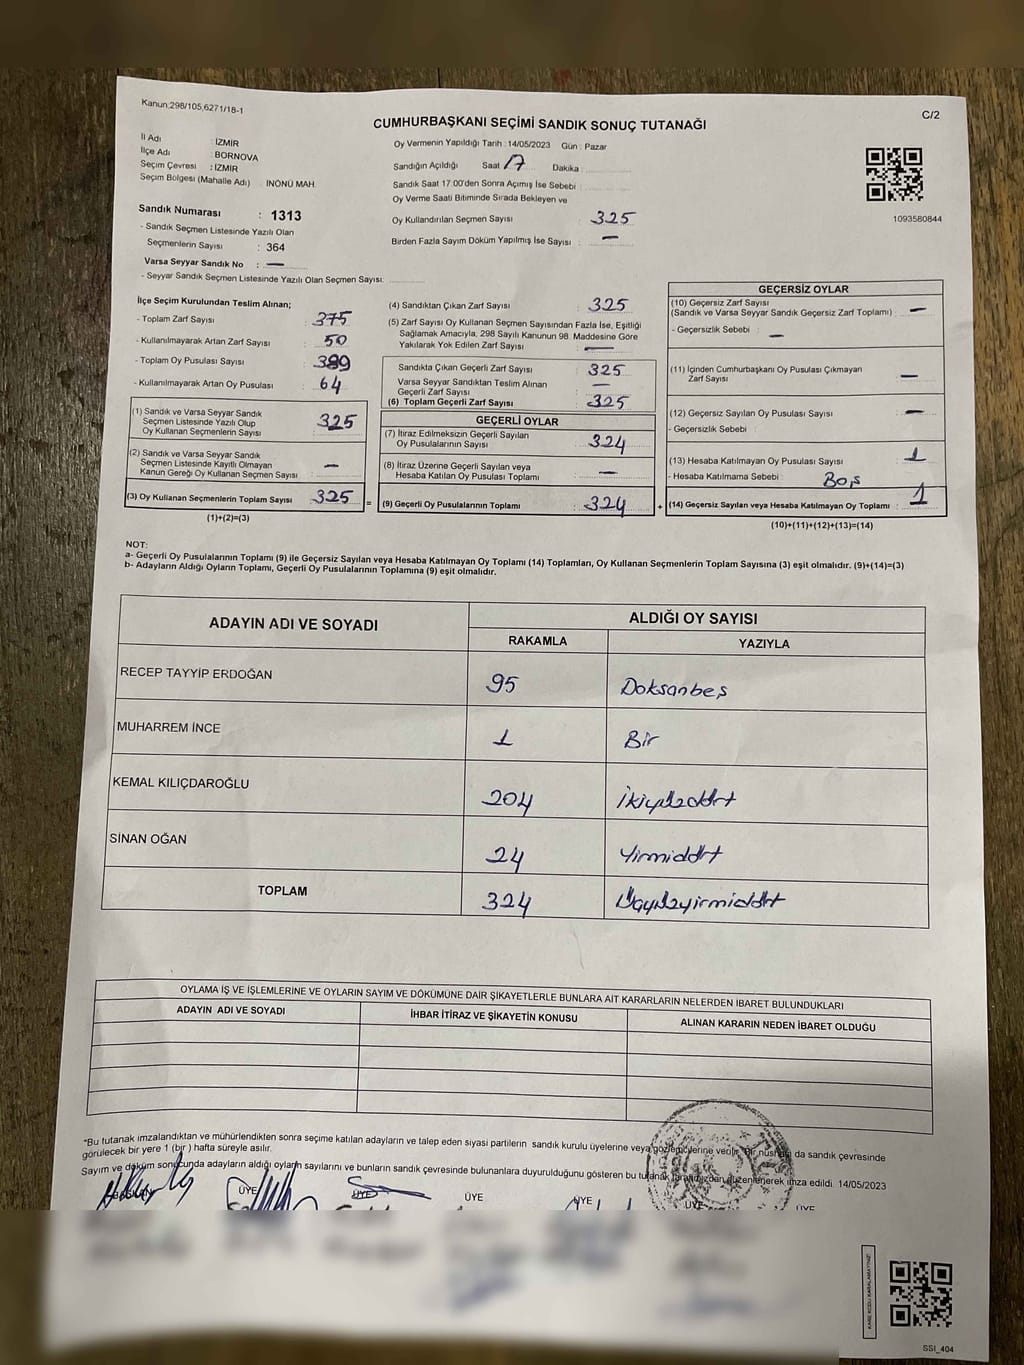 Kanun:298/105,6271/18-1
C/2
CUMHURBAŞKANI SEÇİMİ SANDIK SONUÇ TUTANAĞI
İl Adı : İZMİR
İlçe Adı : BORNOVA
Seçim Çevresi : İZMİR
Seçim Bölgesi (Mahalle Adı) : İNÖNÜ MAH.
Sandık Numarası : 1313
- Sandık Seçmen Listesinde Yazılı Olan
Seçmenlerin Sayısı : 364
Varsa Seyyar Sandık No : —
- Seyyar Sandık Seçmen Listesinde Yazılı Olan Seçmen Sayısı:
Oy Vermenin Yapıldığı Tarih : 14/05/2023 Gün : Pazar
Sandığın Açıldığı Saat 17 Dakika
Sandık Saat 17:00'den Sonra Açımış İse Sebebi :
Oy Verme Saati Bitiminde Sırada Bekleyen ve
Oy Kullandırılan Seçmen Sayısı : 325
Birden Fazla Sayım Döküm Yapılmış İse Sayısı : —
1093580844
İlçe Seçim Kurulundan Teslim Alınan;
- Toplam Zarf Sayısı : 375
- Kullanılmayarak Artan Zarf Sayısı : 50
- Toplam Oy Pusulası Sayısı : 389
- Kullanılmayarak Artan Oy Pusulası : 64
(1) Sandık ve Varsa Seyyar Sandık
Seçmen Listesinde Yazılı Olup
Oy Kullanan Seçmenlerin Sayısı : 325
(2) Sandık ve Varsa Seyyar Sandık
Seçmen Listesinde Kayıtlı Olmayan
Kanun Gereği Oy Kullanan Seçmen Sayısı : —
(3) Oy Kullanan Seçmenlerin Toplam Sayısı : 325 =
(1)+(2)=(3)
(4) Sandıktan Çıkan Zarf Sayısı : 325
(5) Zarf Sayısı Oy Kullanan Seçmen Sayısından Fazla İse, Eşitliği
Sağlamak Amacıyla, 298 Sayılı Kanunun 98. Maddesine Göre
Yakılarak Yok Edilen Zarf Sayısı : —
Sandıkta Çıkan Geçerli Zarf Sayısı : 325
Varsa Seyyar Sandıktan Teslim Alınan
Geçerli Zarf Sayısı : —
(6) Toplam Geçerli Zarf Sayısı : 325
GEÇERLİ OYLAR
(7) İtiraz Edilmeksizin Geçerli Sayılan
Oy Pusulalarının Sayısı : 324
(8) İtiraz Üzerine Geçerli Sayılan veya
Hesaba Katılan Oy Pusulaları Toplamı : —
(9) Geçerli Oy Pusulalarının Toplamı : 324 +
GEÇERSİZ OYLAR
(10) Geçersiz Zarf Sayısı
(Sandık ve Varsa Seyyar Sandık Geçersiz Zarf Toplamı) : —
- Geçersizlik Sebebi : —
(11) İçinden Cumhurbaşkanı Oy Pusulası Çıkmayan
Zarf Sayısı : —
(12) Geçersiz Sayılan Oy Pusulası Sayısı : —
- Geçersizlik Sebebi :
(13) Hesaba Katılmayan Oy Pusulası Sayısı : 1
- Hesaba Katılmama Sebebi : Boş
(14) Geçersiz Sayılan veya Hesaba Katılmayan Oy Toplamı : 1
(10)+(11)+(12)+(13)=(14)
NOT:
a- Geçerli Oy Pusulalarının Toplamı (9) ile Geçersiz Sayılan veya Hesaba Katılmayan Oy Toplamı (14) Toplamları, Oy Kullanan Seçmenlerin Toplam Sayısına (3) eşit olmalıdır. (9)+(14)=(3)
b- Adayların Aldığı Oyların Toplamı, Geçerli Oy Pusulalarının Toplamına (9) eşit olmalıdır.
ADAYIN ADI VE SOYADI ALDIĞI OY SAYISI
RAKAMLA YAZIYLA
RECEP TAYYİP ERDOĞAN 95 Doksanbeş
MUHARREM İNCE 1 Bir
KEMAL KILIÇDAROĞLU 204 İkiyüzdört
SİNAN OĞAN 24 Yirmidört
TOPLAM 324 Üçyüzyirmidört
OYLAMA İŞ VE İŞLEMLERİNE VE OYLARIN SAYIM VE DÖKÜMÜNE DAİR ŞİKAYETLERLE BUNLARA AİT KARARLARIN NELERDEN İBARET BULUNDUKLARI
ADAYIN ADI VE SOYADI İHBAR İTİRAZ VE ŞİKAYETİN KONUSU ALINAN KARARIN NEDEN İBARET OLDUĞU
*Bu tutanak imzalandıktan ve mühürlendikten sonra seçime katılan adayların ve talep eden siyasi partilerin sandık kurulu üyelerine veya gözlemcilerine verilir. Bir nüshası da sandık çevresinde
görülecek bir yere 1 (bir) hafta süreyle asılır.
Sayım ve döküm sonucunda adayların aldığı oyların sayılarını ve bunların sandık çevresinde bulunanlara duyurulduğunu gösteren bu tutanak tarafımızdan düzenlenerek imza edildi. 14/05/2023
BAŞKAN ÜYE ÜYE ÜYE ÜYE ÜYE ÜYE
KARE KODU KARALAMAYINIZ!
SSI_404